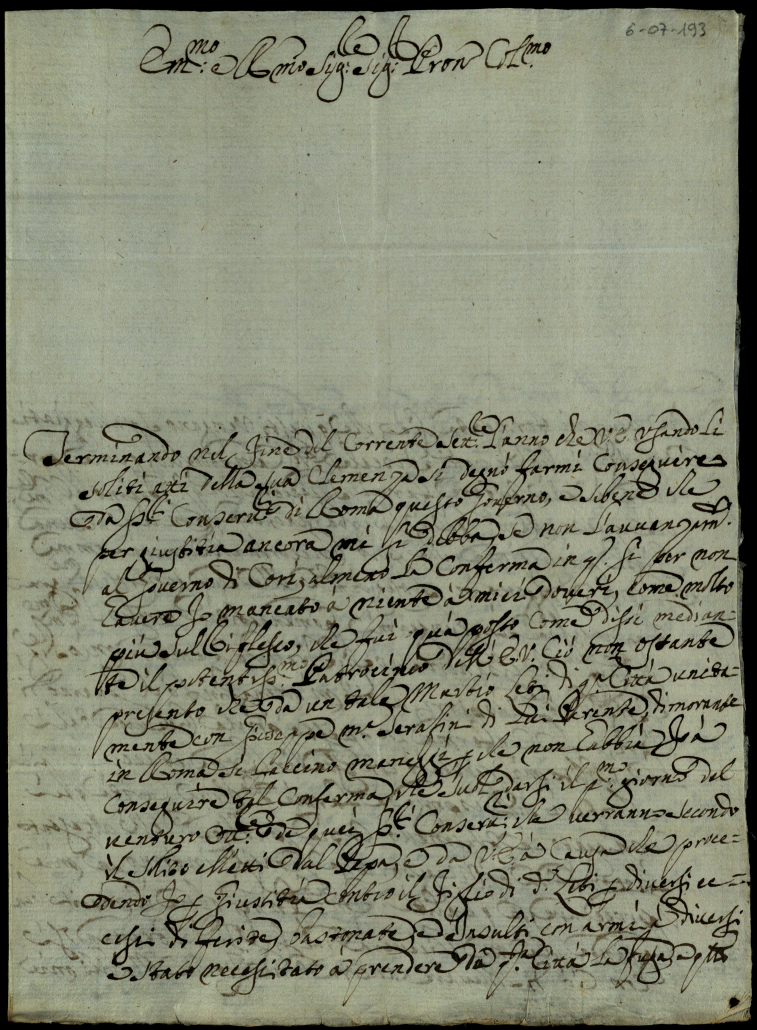 6-07-193
Em.mo e R.mo Sig.re Sig.r Pron Col.mo
Terminando nel fine del Corrente Sett.re l'anno che V.E. usando li
soliti atti della sua Clemenza si degnò farmi Conseguire
da SS.ri Conserv.ri di Roma questo Governo, e sebene che
per giustitia ancora mi si debba, se non l'avvanzam.to
al Governo di Cori, almeno la Conferma in q.o si per non
havere Io mancato à niente à miei doveri, come molto
più sul riflesso, che fui quà posto come dissi median-
te il potentiss.mo Patrocinio dell' E.V. Ciò non ostante
presento che da un tale Martio Lebi di q.a Città unita-
mente con Giuseppe m.a Serafini di Lui Parente, dimorante
in Roma si faccino maneggi p che non habbia Io à
Conseguire tal Conferma, che suol darsi il p.mo giorno del
venturo Ott.re da quei SS.ri Conserv.ri che verranno secondo
il solito eletti dal Papa, e da V.E. à Causa che proce-
dendo Io p Giustitia contro il figlio di d.o Lebi p diversi ec-
cessi di ferite, bastonate, ed Insulti con armi p diversi
e stato necessitato à prendere da q.a Città la fuga, e p